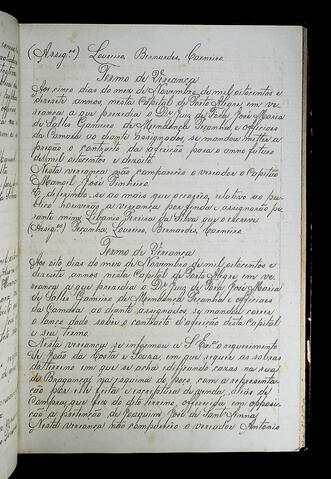 (Assig.os) Loureiro Bernardes, Carneiro.
Termo de Vereança
Aos cinco dias do mez de Novembro de mil oitocentos e
dezesete annos, nesta Capital de Porto Alegre em ve-
reança a que presidio o Dr. Juiz de Fora José Maria
de Salles Gameiro de Mendonça Peçanha e officiaes
da Camara ao diante assignados, se mandou metter a
pregão o contracto da afeição para o anno futuro
de mil oitocentos e dezoito.
Nesta vereança não compareceo o vereador o Capitão
Manoel José Pinheiro.
E, deferindo-se ao mais que occorreo, relativo ao pu-
blico houverão as vereança por finda e assignarão pe-
rante mim, Libanio Pereira da Silva que o escrevi
(Assig.os) Peçanha, Loureiro, Bernardes, Carneiro.
Termo de Vereança
Aos oito dias do mez de Novembro de mil oitocentos e
dezesete annos nesta Capital de Porto Alegre em ver-
eança a que presidio o Dr. Juiz de Fora José Maria
de Salles Gameiro de Mendonça Peçanha e officiaes
da Camara ao diante assignados, se mandou correr
o lance dado sobre o contracto d'afeição desta capital
e seu termo.
Nesta vereança se informou a S. Ex.a o requerimento
de João da Costa e Souza, em que requer as sobras
do terreno em que se acha edificando casas na rua
de Bragança, na esquina do beco, com a representa-
ção por elle feita e escriptura de venda, digo de
compra que fez do dito terreno, offerecida em opposi-
ção a pretenção de Joaquim José de Sant'Anna
Nesta vereança não compareceo o vereador Antonio